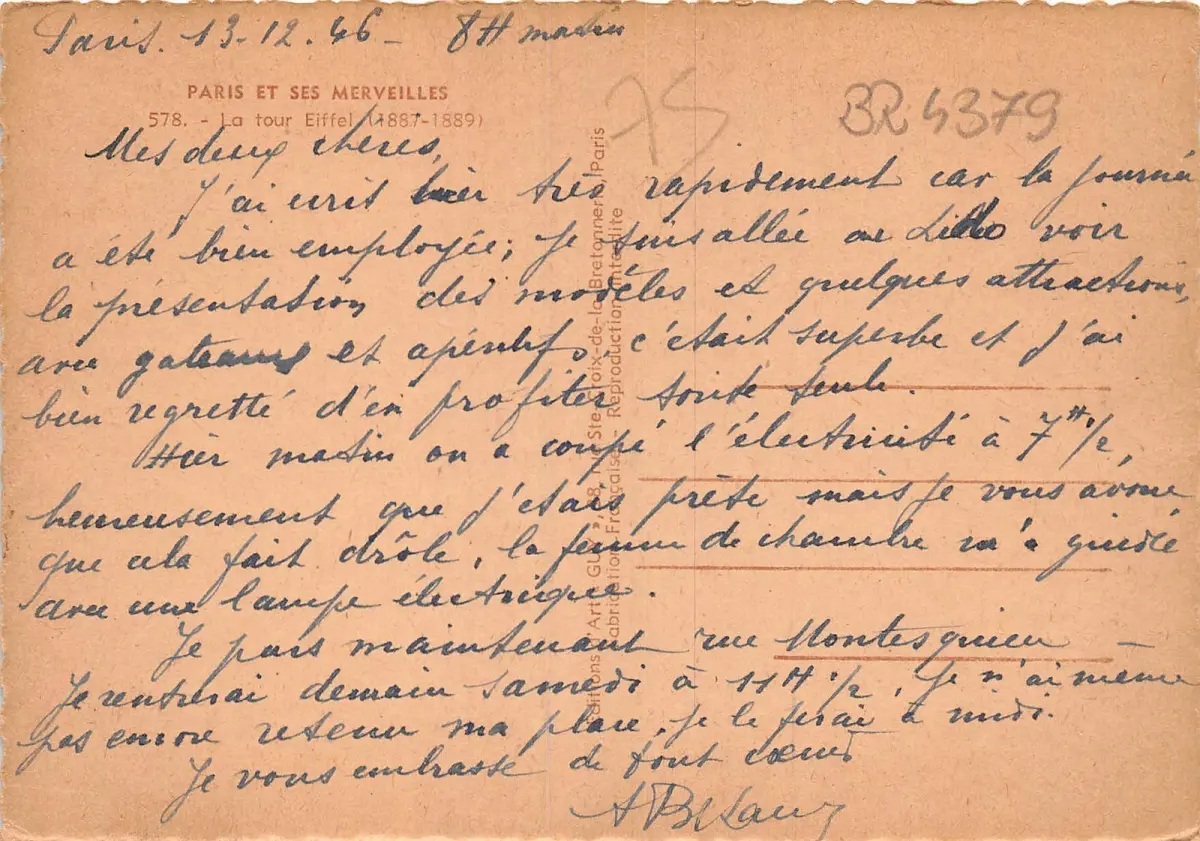 Paris. 13-12.46 - 8H matin
PARIS ET SES MERVEILLES
578. - La tour Eiffel (1887-1889)
75
BR 4379
Mes deux chères,
J'ai écrit hier très rapidement car la journée
a été bien employée; je suis allée au Lido voir
la présentation des modèles et quelques attractions,
avec gateaux et apéritifs, c'était superbe et j'ai
bien regretté d'en profiter toute seule.
Hier matin on a coupé l'électricité à 7H 1/2,
heureusement que j'étais prête mais je vous avoue
que cela fait drôle, la femme de chambre m'a guidée
avec une lampe électrique.
Je pars maintenant rue Montesquieu -
Je rentrerai demain samedi à 11H 1/2, je n'ai même
pas encore retenu ma place, je le ferai à midi.
Je vous embrasse de tout cœur
Editions d'Art GUY, 18, rue Ste-Croix-de-la-Bretonnerie, Paris
Fabrication Française - Reproduction interdite